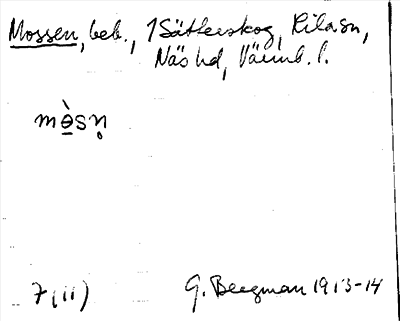 Mossen, beb., 1 Sätterskog, Kila sn,
Näs hd, Värml. l.
mə̠̀sn̥
7(11)
G. Bergman 1913-14